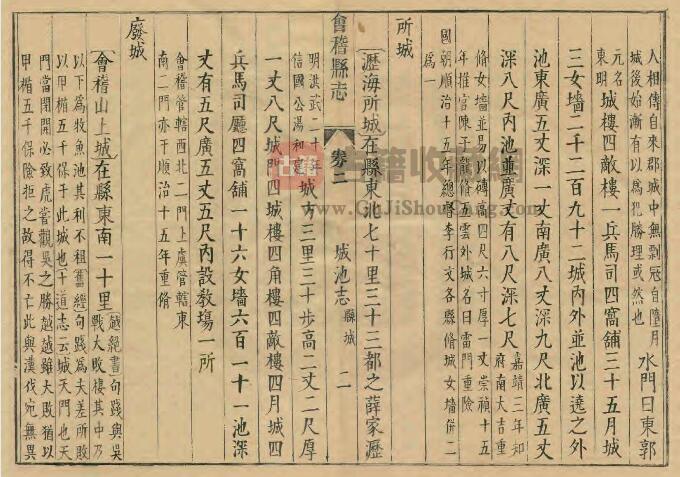 人相傳自來郡城中無剽寇自隍月
城後始漸有以爲犯勝理或然也
水門曰東郭
元名
東明
城樓四敵樓一兵馬司四窩舖三十五月城
三女墻二千二百九十二城內外並池以遶之外
池東廣五丈深一丈南廣八丈深九尺北廣五丈
深八尺內池並廣丈有八尺深七尺
嘉靖三年知
府南大吉重
脩女墻並易以磚高四尺六寸厚一丈崇禎十五
年推官陳子龍脩五雲外城名曰雷門重險
國朝順治十五年總督李行文各縣脩城女墻併二
爲一
所城
瀝海所城在縣東北七十里三十三都之薛家瀝
會稽縣志
卷二
城池志
縣城
二
明洪武二十年
信國公湯和建
城方三里三十步高二丈二尺厚
一丈八尺城門四城樓四角樓四敵樓四月城四
兵馬司廳四窩舖一十六女墻六百一十一池深
丈有五尺廣五丈五尺內設教塲一所
會稽管轄西北二門上虞管轄東
南二門亦于順治十五年重脩
廢城
會稽山上城在縣東南一十里
越絕書句踐與吳
戰大敗棲其中乃
以下爲牧魚池其利不租舊經句踐爲夫差所敗
以甲楯五千保于此城也十道志云城天門也天
門當閉開必致虎當觀吳之勝越越雖大敗猶以
甲楯五千保險拒之故得不亡此與漢伐宛無異